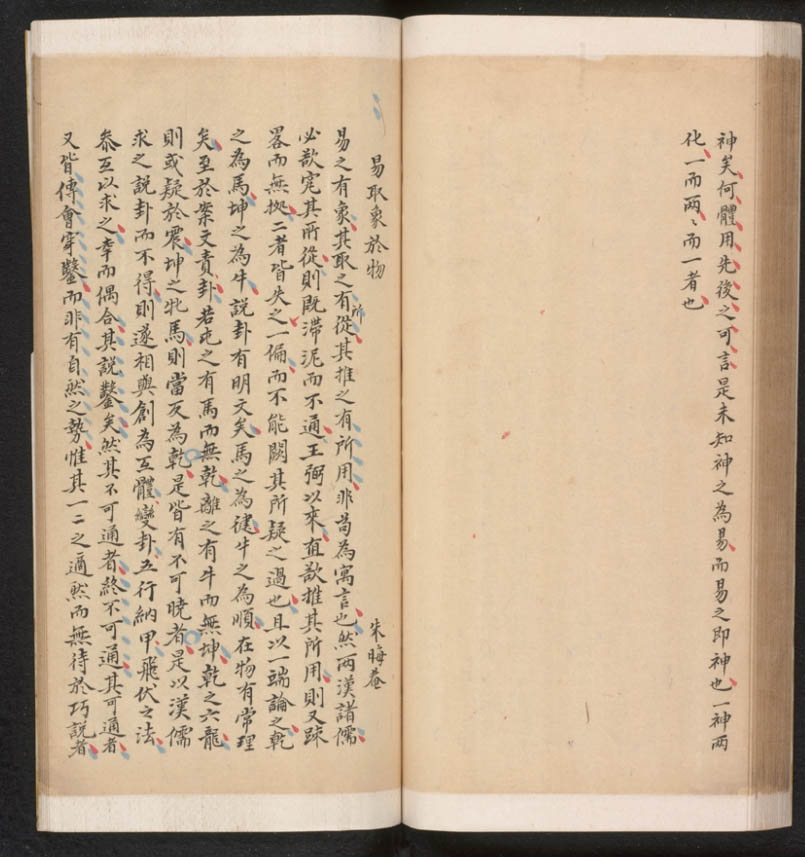 神矣何體用先後之可言是未知神之為易而易之即神也一神兩
化一而兩〻而一者也
易取象於物
朱晦菴
易之有象其取之有所從其推之有所用非苟為寓言也然兩漢諸儒
必欲究其所從則既滯泥而不通王弼以來直欲推其所用則又踈
畧而無拠二者皆失之一偏而不能闕其所疑之過也且以一端論之乾
之為馬坤之為牛說卦有明文矣馬之為健牛之為順在物有常理
矣至於案文責卦若屯之有馬而無乾離之有牛而無坤乾之六龍
則或疑於震坤之牝馬則當反為乾是皆有不可曉者是以漢儒
求之說卦而不得則遂相與創為互體變卦五行納甲飛伏之法
叅互以求之幸而偶合其說鑿矣然其不可通者終不可通其可通者
又皆傳會穿鑿而非有自然之勢惟其一二之適然而無待於巧說者